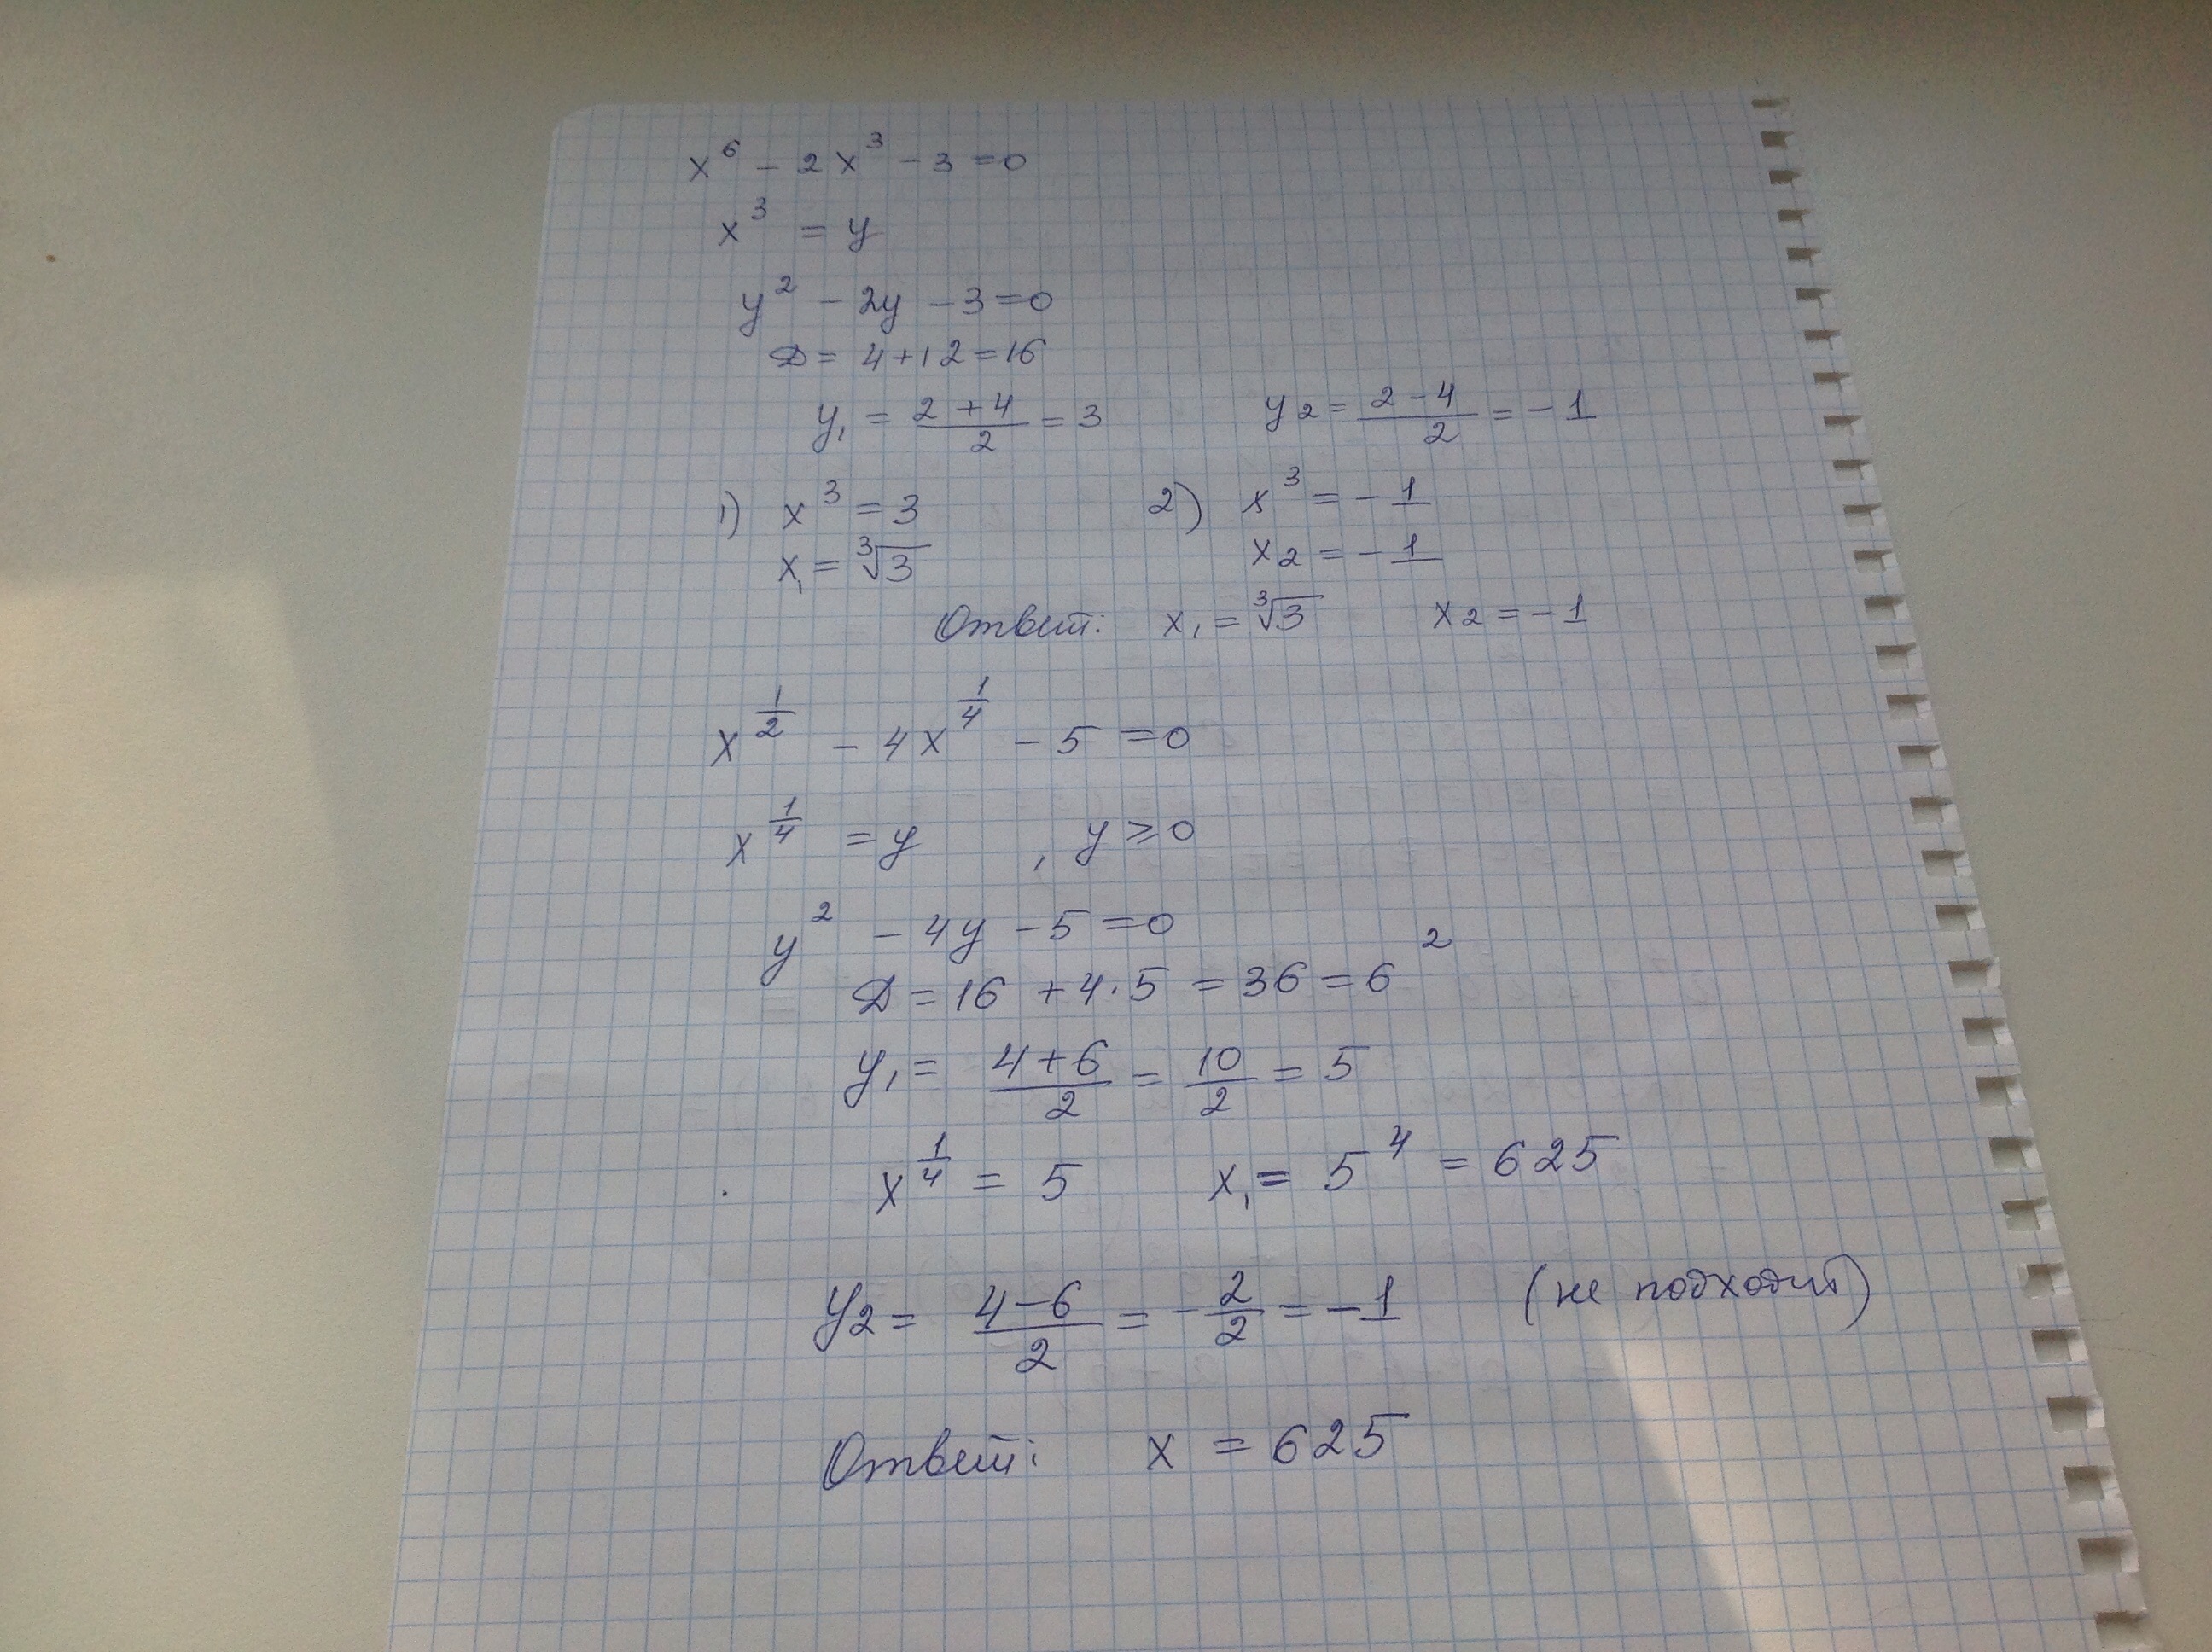 x⁶ - 2x³ - 3 = 0
x³ = y
y² - 2y - 3 = 0
D = 4 + 12 = 16
y₁ = (2 + 4)/2 = 3    y₂ = (2 - 4)/2 = -1
1) x³ = 3    2) x³ = -1
x₁ = ∛3    x₂ = -1
Ответ: x₁ = ∛3    x₂ = -1
x^(1/2) - 4x^(1/4) - 5 = 0
x^(1/4) = y , y ≥ 0
y² - 4y - 5 = 0
D = 16 + 4·5 = 36 = 6²
y₁ = (4 + 6)/2 = 10/2 = 5
x^(1/4) = 5    x₁ = 5⁴ = 625
y₂ = (4 - 6)/2 = -2/2 = -1    (не подходит)
Ответ: x = 625